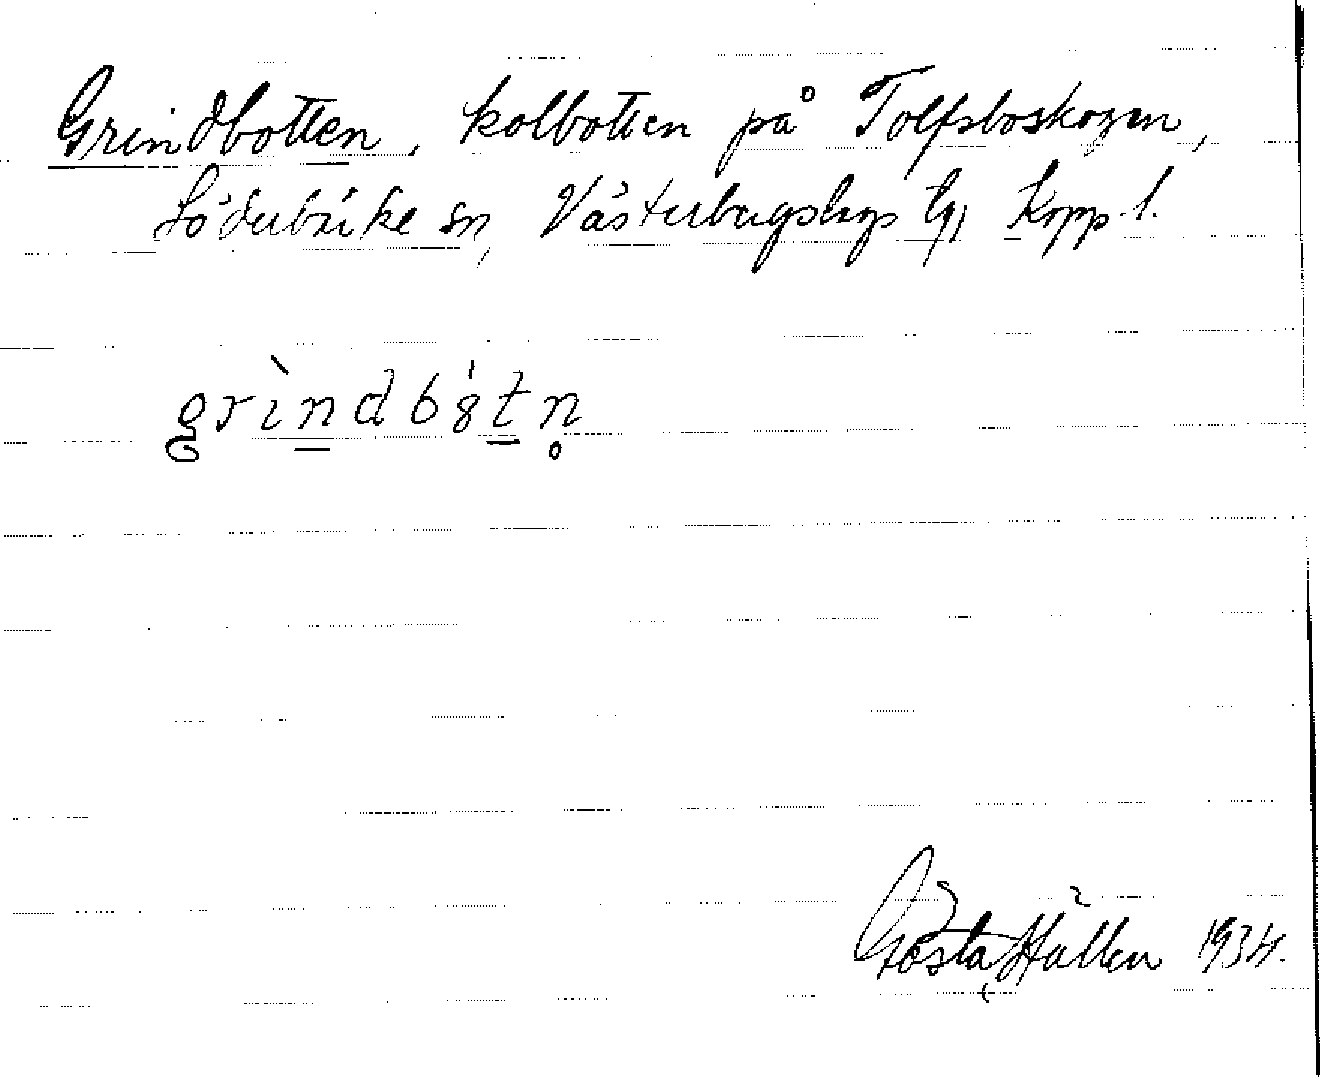 Grindbotten, kolbotten på Tolfsboskogen,
Söderbärke sn, Västerbergslags tg, Kopp. l.
grìndbȣ́tn̥
Gösta Hällen 1934.